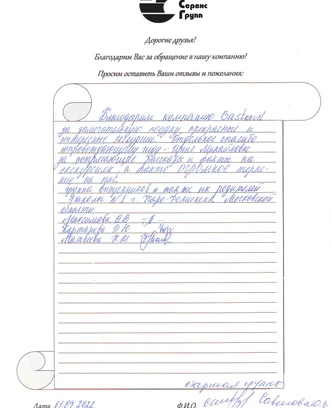 Сервис
Групп
Дорогие друзья!
Благодарим Вас за обращение в нашу компанию!
Просим оставить Ваши отзывы и пожелания:
Благодарим компанию
за замечательную поездку, прекрасные и
интересные экскурсии. Отдельное спасибо
сопровождающему гиду - Михайловне
за потрясающие рассказы и факты на
экскурсиях, а также огромное терпе-
ние на нас.
группа выпускников и также их родители
Школы №1 г. Наро-Фоминска Московской
области
Максимова
Матвеева
старшая группы
Дата 01.07.2022 Ф.И.О.